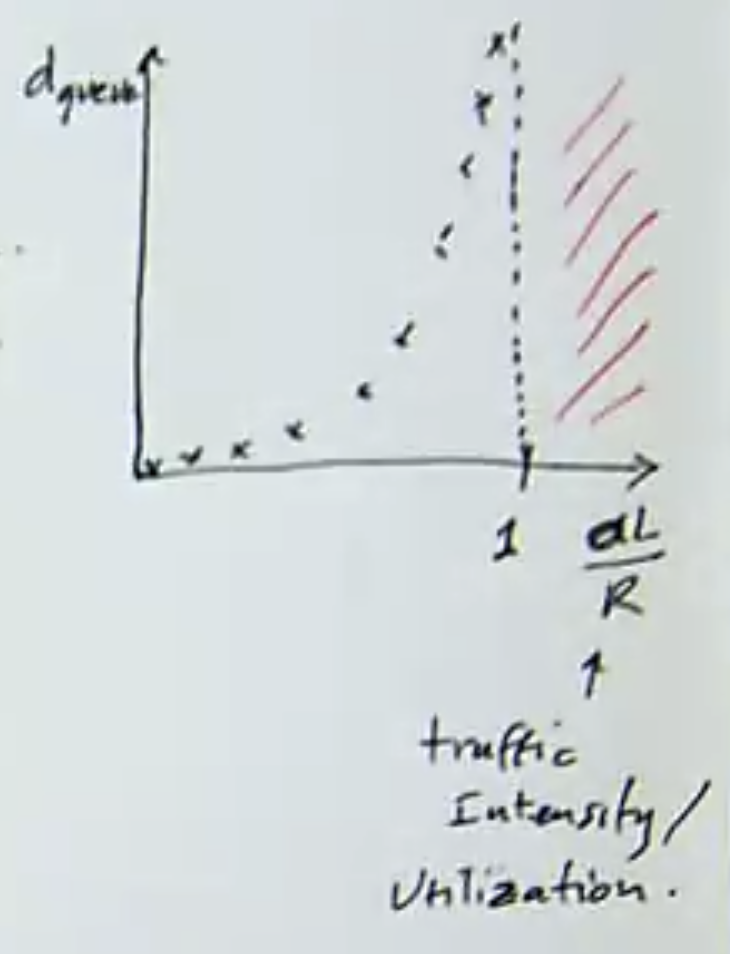 d queue
1
aL
R
traffic
Intensity/
Utilization.